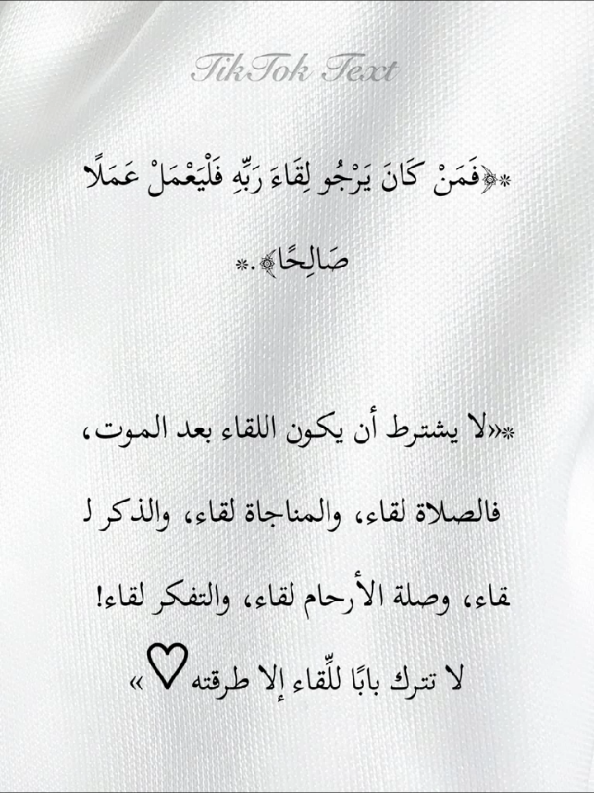 TikTok Text
*﴿فَمَنْ كَانَ يَرْجُو لِقَاءَ رَبِّهِ فَلْيَعْمَلْ عَمَلًا
صَالِحًا﴾.*
*«لا يشترط أن يكون اللقاء بعد الموت،
فالصلاة لقاء، والمناجاة لقاء، والذكر لـ
قاء، وصلة الأرحام لقاء، والتفكر لقاء!
لا تترك بابًا للِّقاء إلا طرقته♡ »